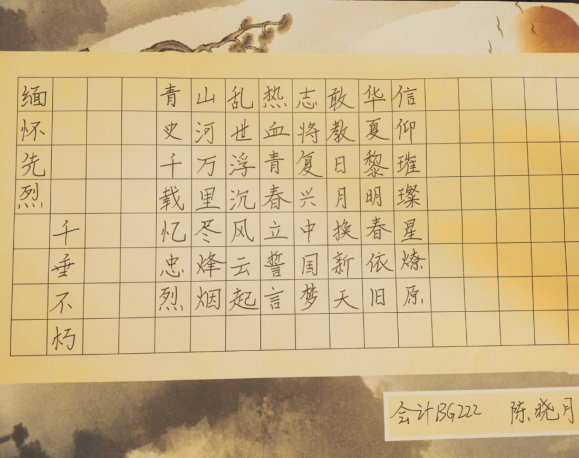 缅怀先烈
千垂不朽
青史千载忆忠烈
山河万里尽烽烟
乱世浮沉风云起
热血青春立誓言
志将复兴中国梦
敢教日月换新天
华夏黎明春依旧
信仰璀璨星燎原
会计BG222 陈晓月